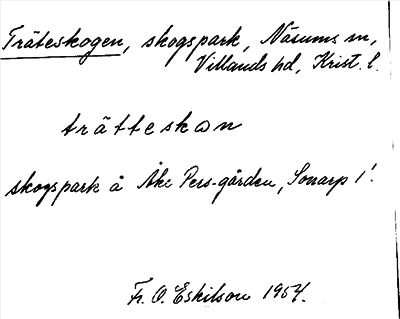 Träteskogen, skogspark, Näsums sn,
Villands hd, Krist. l.
trätteskωn
skogspark å Åke Pers-gården, Sonarp 1¹.
Fr. O. Eskilson 1954.